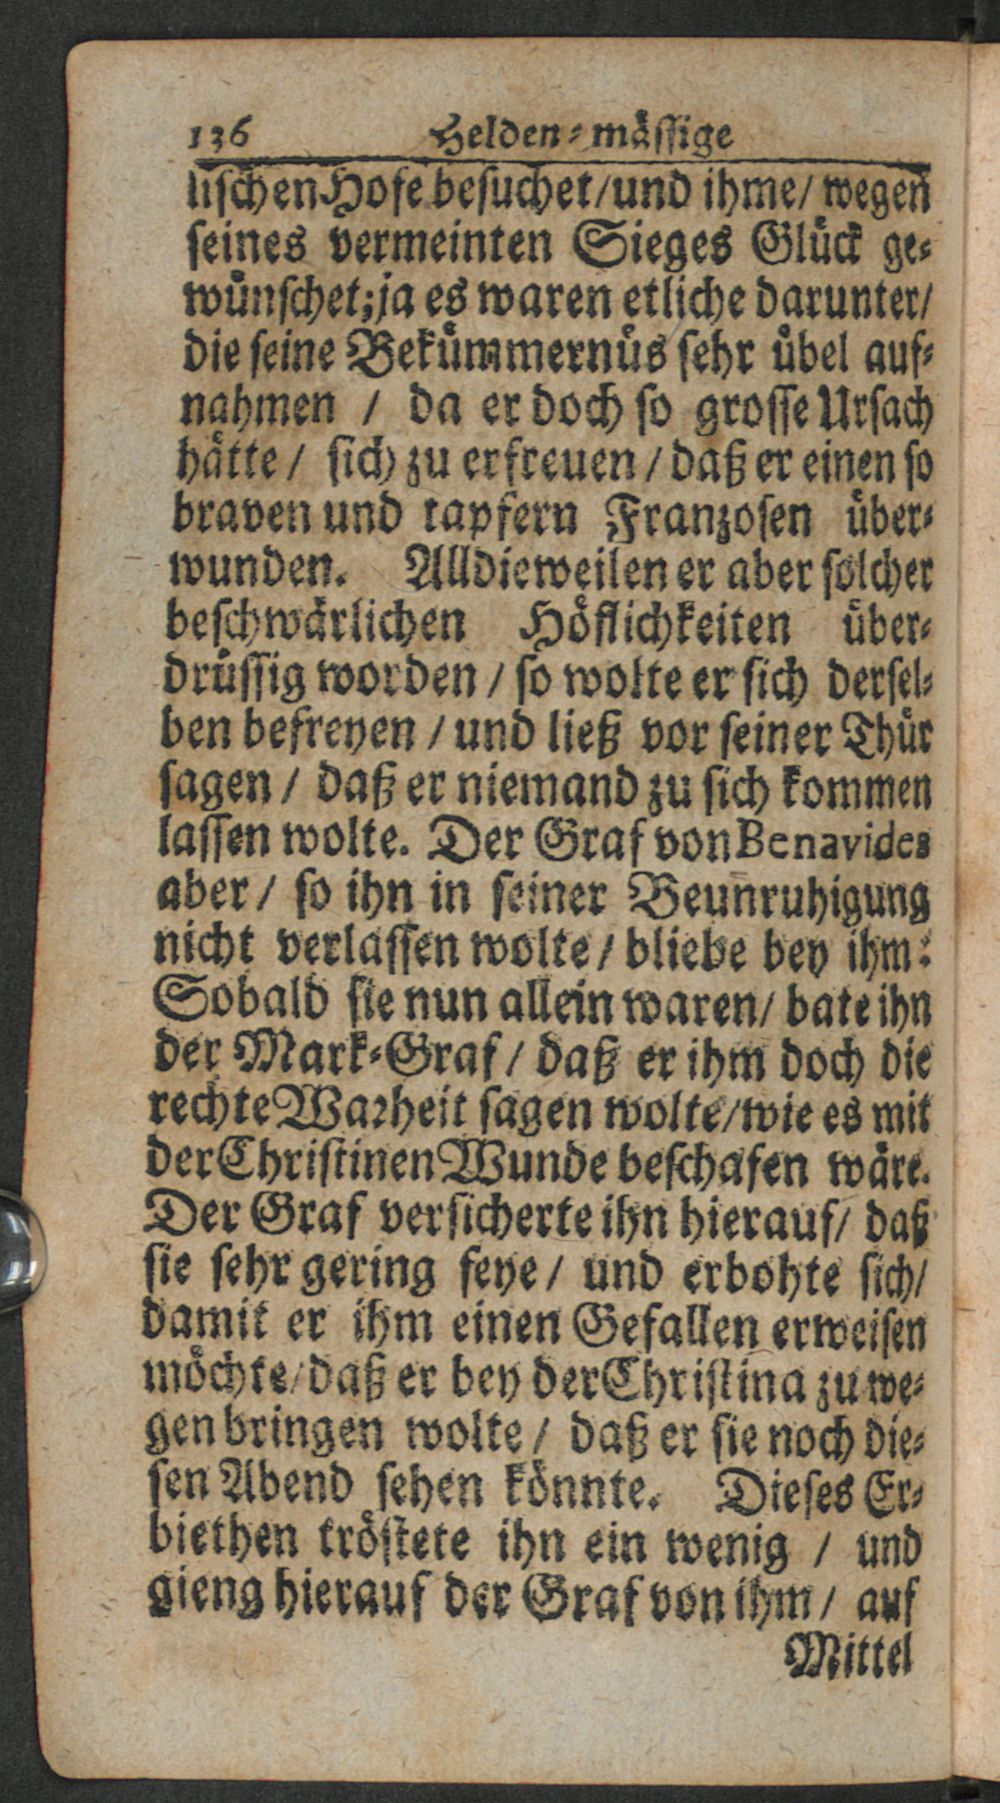 136 Helden-mässige
lischen Hofe besuchet/und ihme/ wegen
seines vermeinten Sieges Glück ge-
wünschet; ja es waren etliche darunter/
die seine Bekümmernüs sehr übel auf-
nahmen / da er doch so grosse Ursach
hätte / sich zu erfreuen / daß er einen so
braven und tapfern Franzosen über-
wunden. Alldieweilen er aber solcher
beschwärlichen Höflichkeiten über-
drüssig worden / so wolte er sich dersel-
ben befreyen / und ließ vor seiner Thür
sagen / daß er niemand zu sich kommen
lassen wolte. Der Graf von Benavides
aber / so ihn in seiner Beunruhigung
nicht verlassen wolte / bliebe bey ihm:
Sobald sie nun allein waren/ bate ihn
der Mark-Graf / daß er ihm doch die
rechte Warheit sagen wolte/wie es mit
der Christinen Wunde beschafen wäre.
Der Graf versicherte ihn hierauf/ daß
sie sehr gering seye / und erbohte sich/
damit er ihm einen Gefallen erweisen
möchte/daß er bey der Christina zu we-
gen bringen wolte / daß er sie noch die-
sen Abend sehen könnte. Dieses Er-
biethen tröstete ihn ein wenig / und
gieng hierauf der Graf von ihm / auf
Mittel